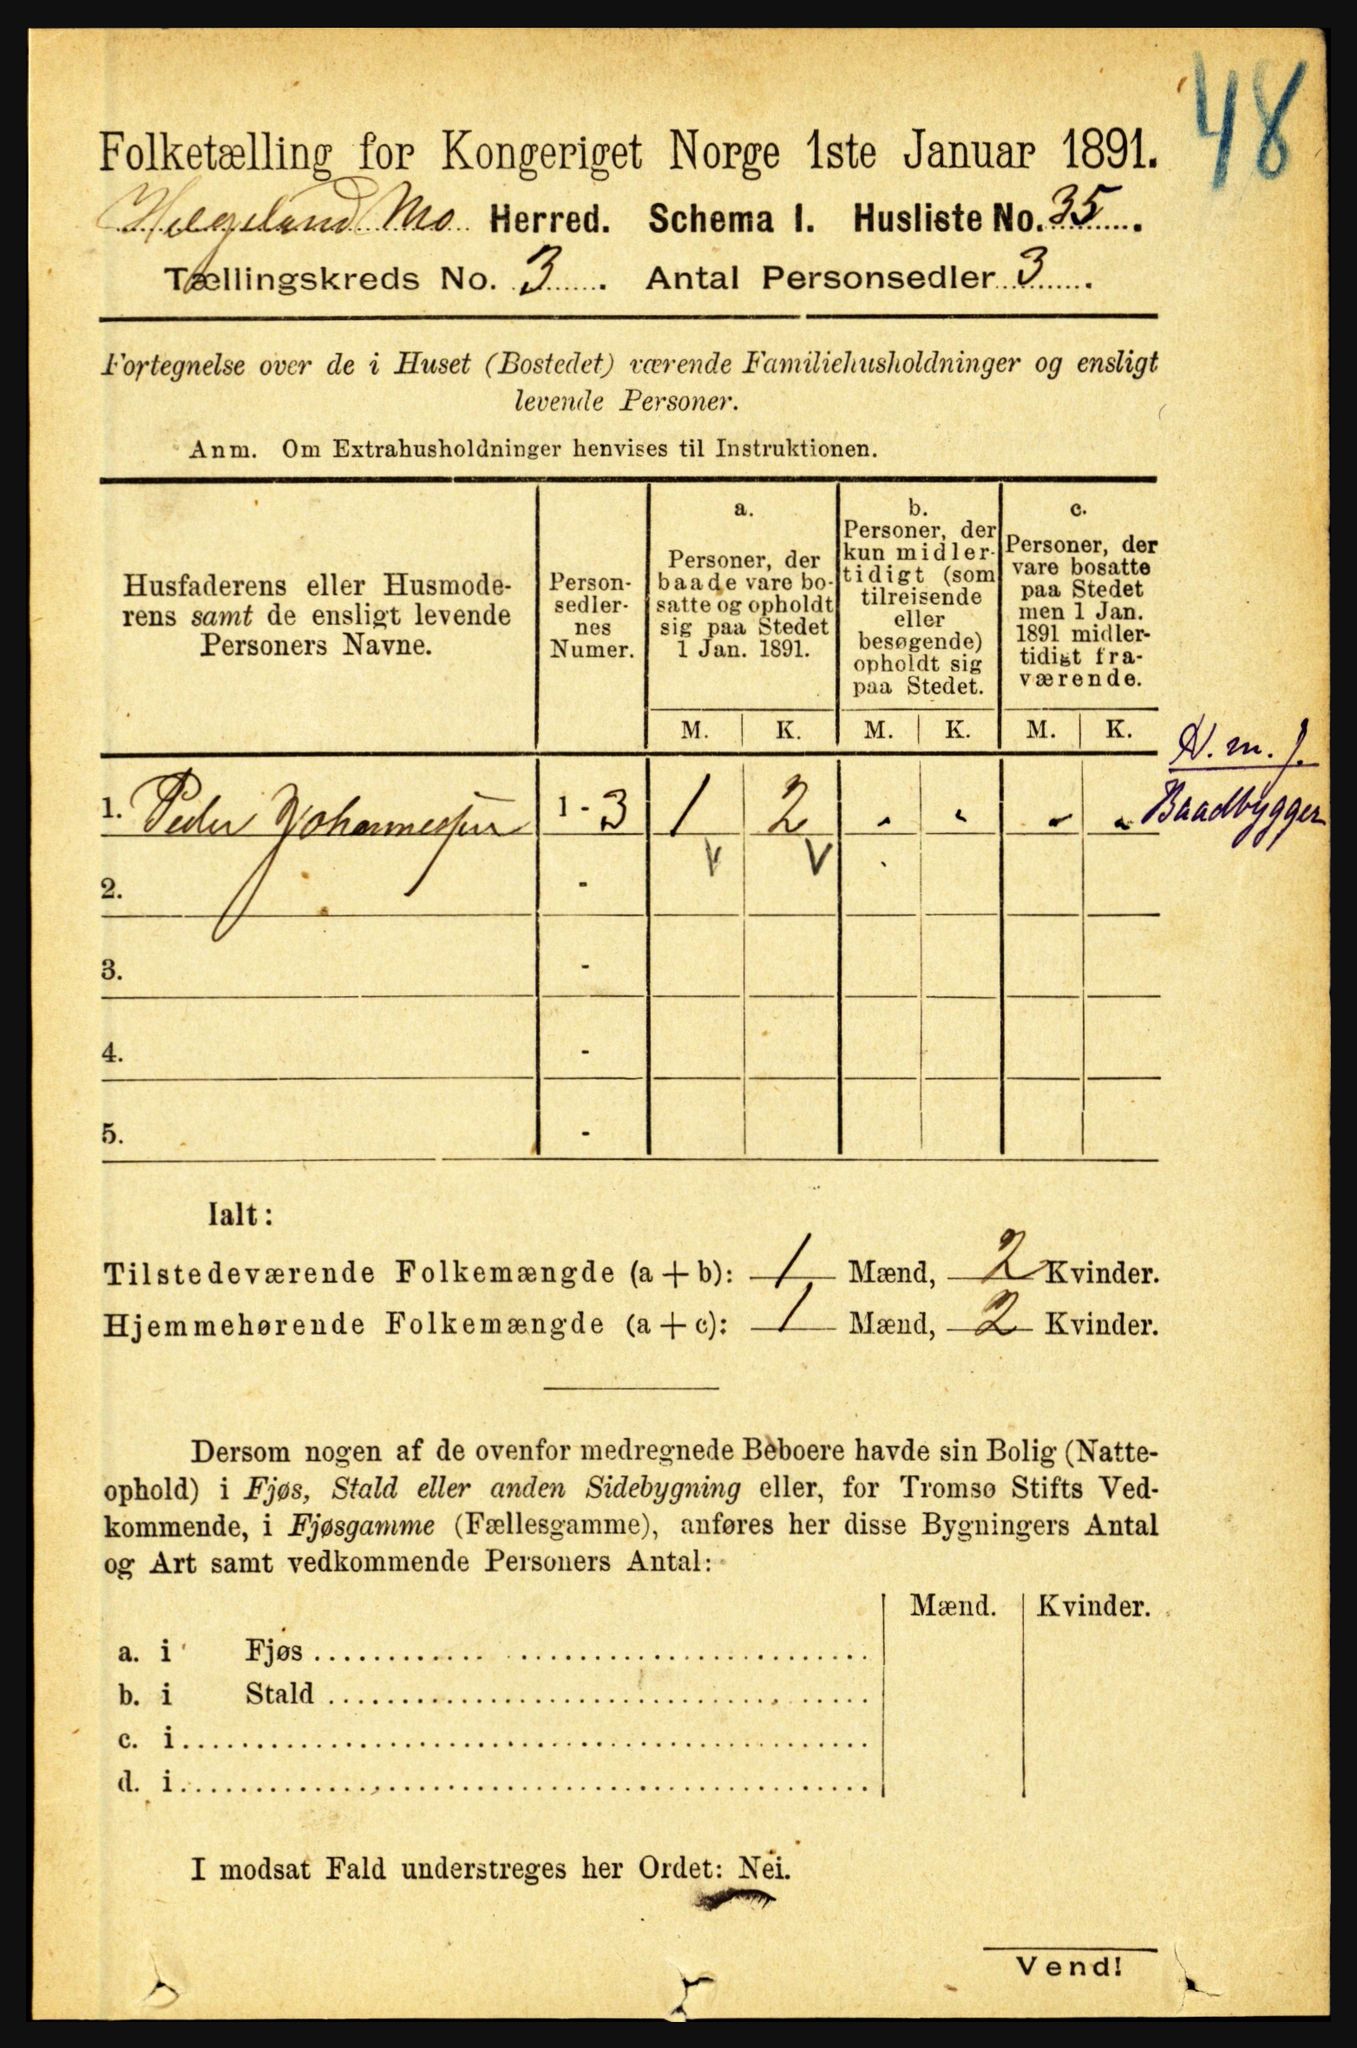 48
Folketælling for Kongeriget Norge 1ste Januar 1891.
Helgeland Mo Herred. Schema I. Husliste No. 35.
Tællingskreds No. 3. Antal Personsedler 3.
Fortegnelse over de i Huset (Bostedet) værende Familiehusholdninger og ensligt
levende Personer.
Anm. Om Extrahusholdninger henvises til Instruktionen.
Husfaderens eller Husmode-
rens samt de ensligt levende
Personers Navne.
Person-
sedler-
nes
Numer.
a.
Personer, der
baade vare bo-
satte og opholdt
sig paa Stedet
1 Jan. 1891.
b.
Personer, der
kun midler-
tidigt (som
tilreisende
eller
besøgende)
opholdt sig
paa Stedet.
c.
Personer, der
vare bosatte
paa Stedet
men 1 Jan.
1891 midler-
tidigt fra-
værende.
M. K. M. K. M. K.
H. m. J.
1. Peder Johannessen 1 - 3 1 2 Baadbygger
2. - V V
3. -
4. -
5. -
Ialt:
Tilstedeværende Folkemængde (a + b): 1 Mænd, 2 Kvinder.
Hjemmehørende Folkemængde (a + c): 1 Mænd, 2 Kvinder.
Dersom nogen af de ovenfor medregnede Beboere havde sin Bolig (Natte-
ophold) i Fjøs, Stald eller anden Sidebygning eller, for Tromsø Stifts Ved-
kommende, i Fjøsgamme (Fællesgamme), anføres her disse Bygningers Antal
og Art samt vedkommende Personers Antal:
Mænd. Kvinder.
a. i Fjøs
b. i Stald
c. i
d. i
I modsat Fald understreges her Ordet: Nei.
Vend!